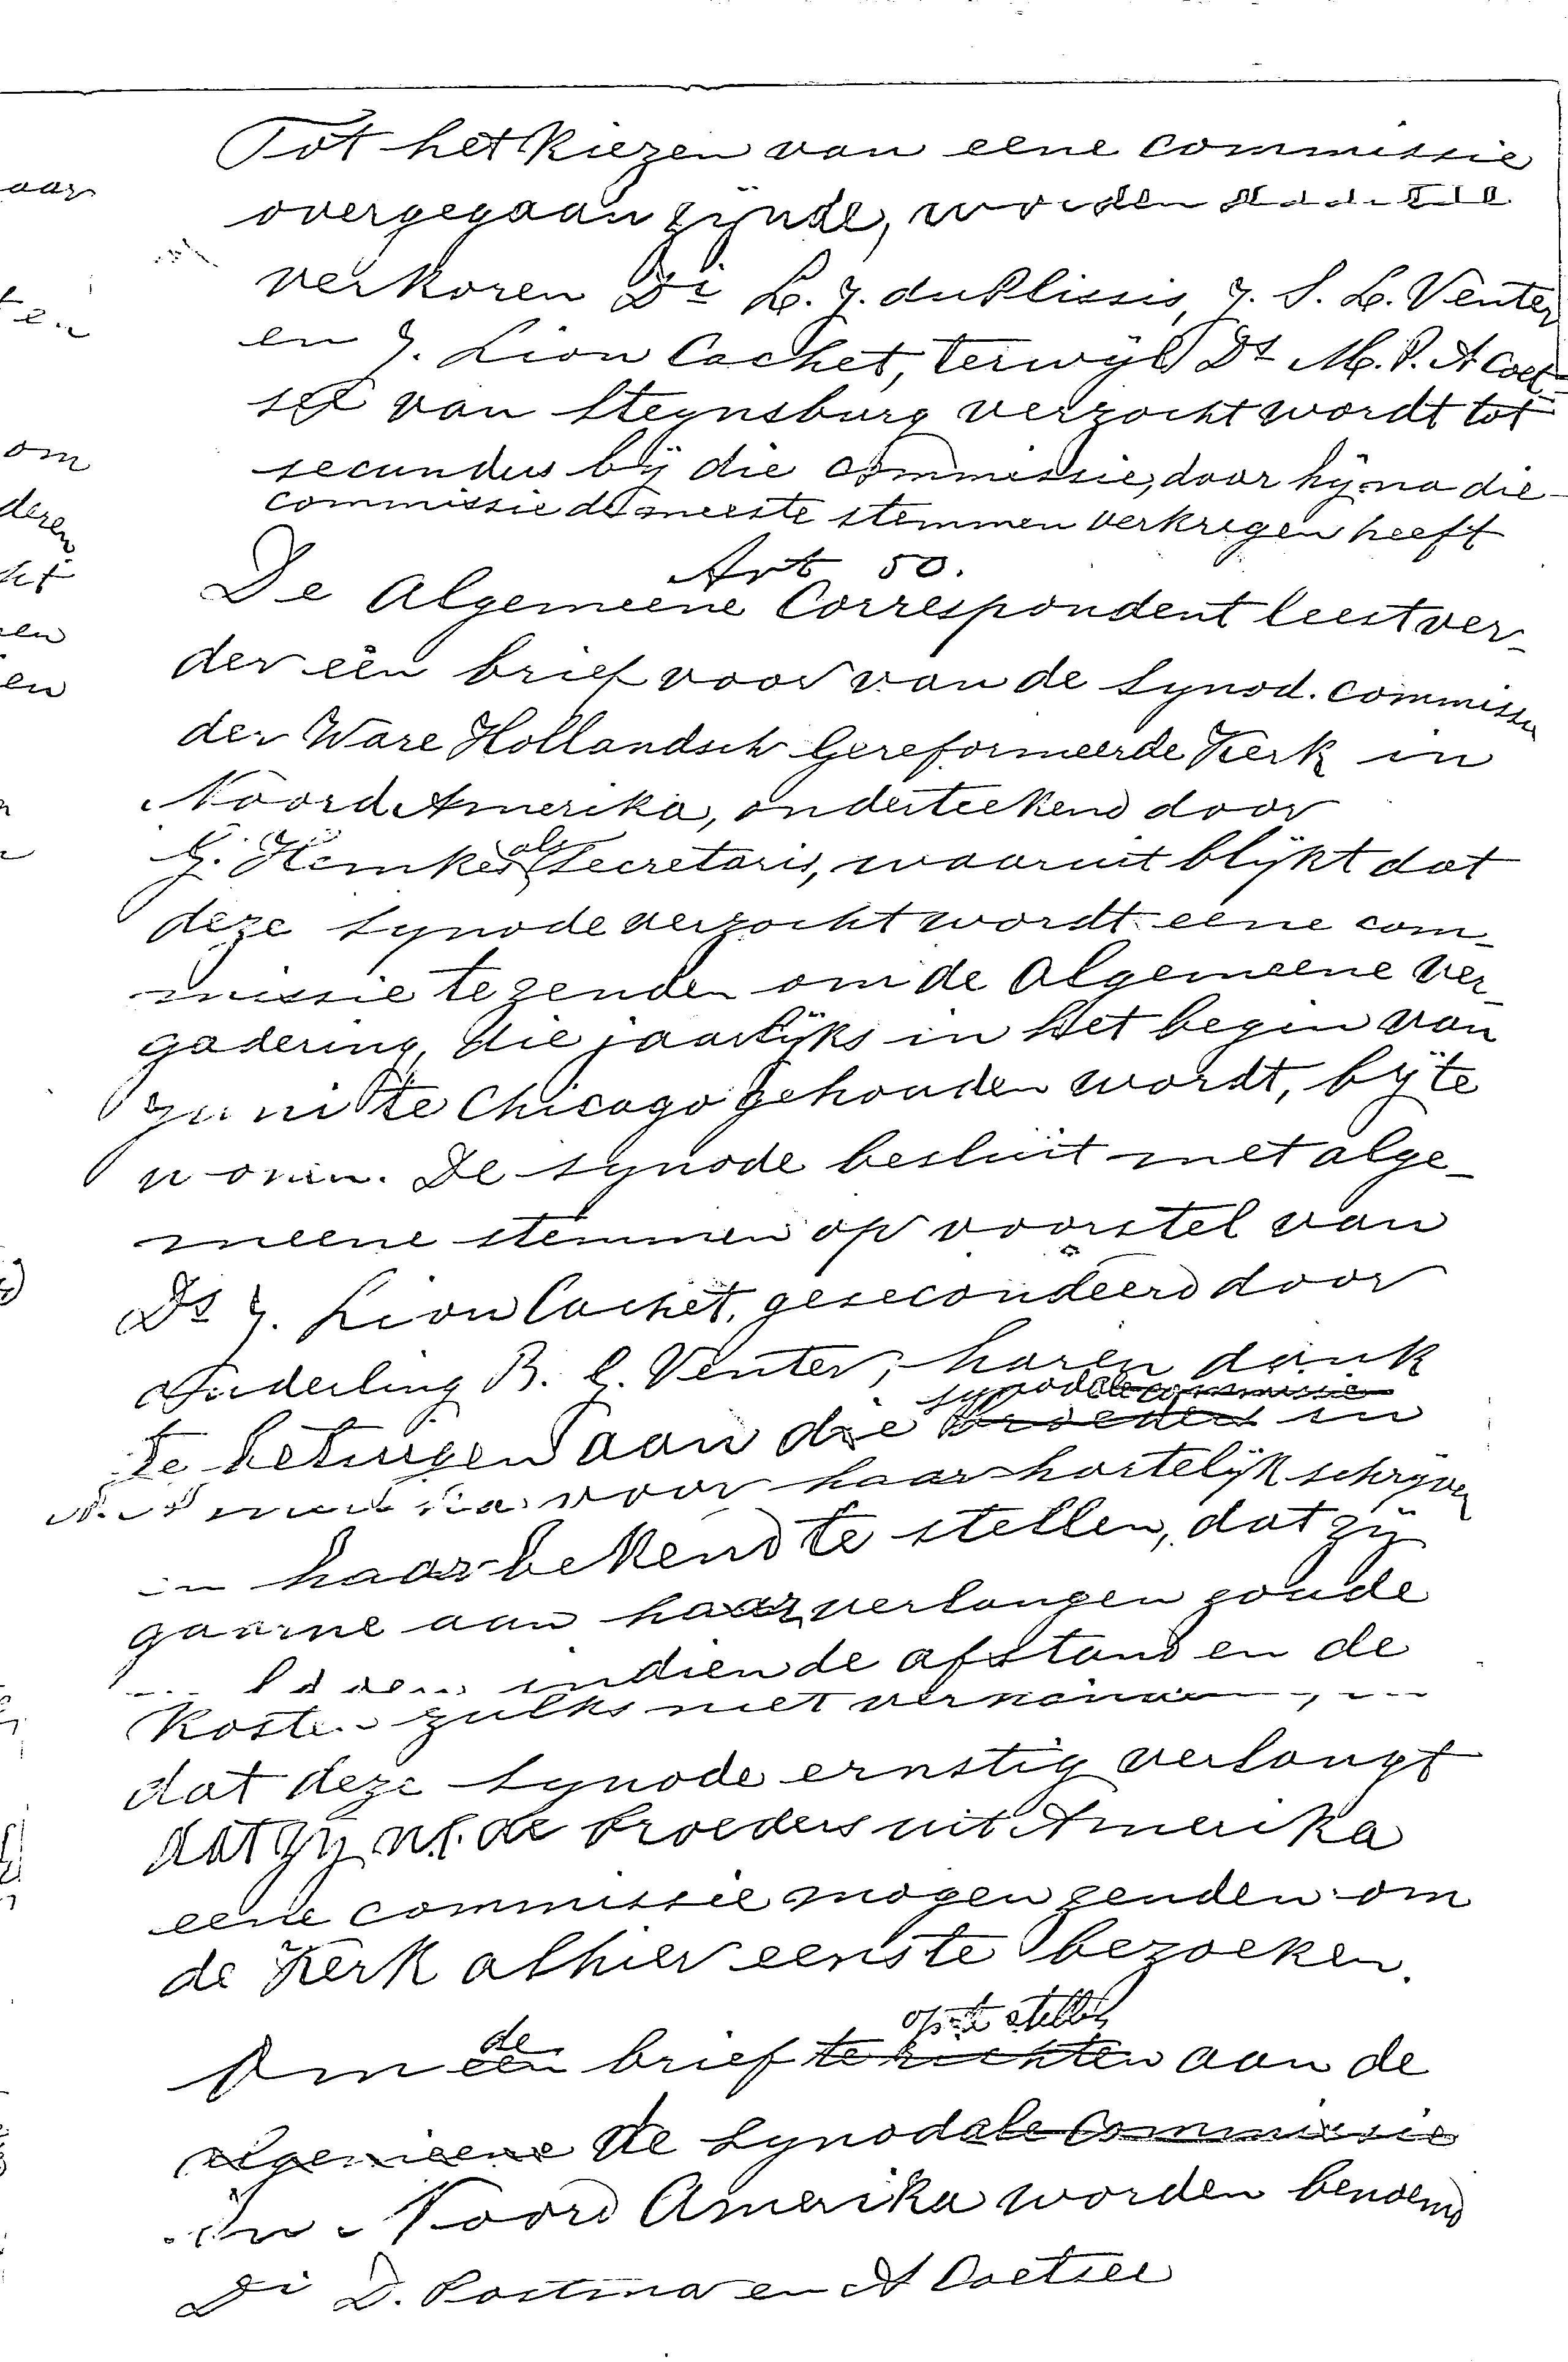 Tot het kiezen van eene commissie
overgegaan zijnde, worden daartoe
verkoren Di L. J. du Plissis, J. S. L. Venter
en J. Lion Cachet, terwijl Ds M. P. A Coet-
see van Steynsburg verzocht wordt tot
secundus bij die commissie, daar hij na die
commissie de meeste stemmen verkregen heeft
Art 50.
De Algemeene Correspondent leest ver-
der een brief voor van de Synod. commissie
der Ware Hollandsch Gereformeerde Kerk in
Noord Amerika, onderteekend door
G. Hemkes als Secretaris, waaruit blijkt dat
deze Synode verzocht wordt eene com-
missie te zenden om de Algemeene Ver-
gadering, die jaarlijks in het begin van
Juni te Chicago gehouden wordt, bij te
wonen. De Synode besluit met alge-
meene stemmen op voorstel van
Ds J. Lion Cachet, gesecondeerd door
Ouderling B. G. Venter, haren dank
te betuigen aan die synodale commissie broeders in
N. Amerika voor haar hartelijk schrijven
en haar bekend te stellen, dat zij
gaarne aan haar verlangen zoude
indien de afstand en de
Kosten zulks niet
dat deze Synode ernstig verlangt
dat zij n.l. de broeders uit Amerika
eene commissie mogen zenden om
de Kerk alhier eens te bezoeken.
Om de een brief op te stellen te richten aan de
algemeene de Synodale Commissie
in Noord Amerika worden benoemd
Di D. Postma en A Coetsee
aar
ten
om
deren
en
en